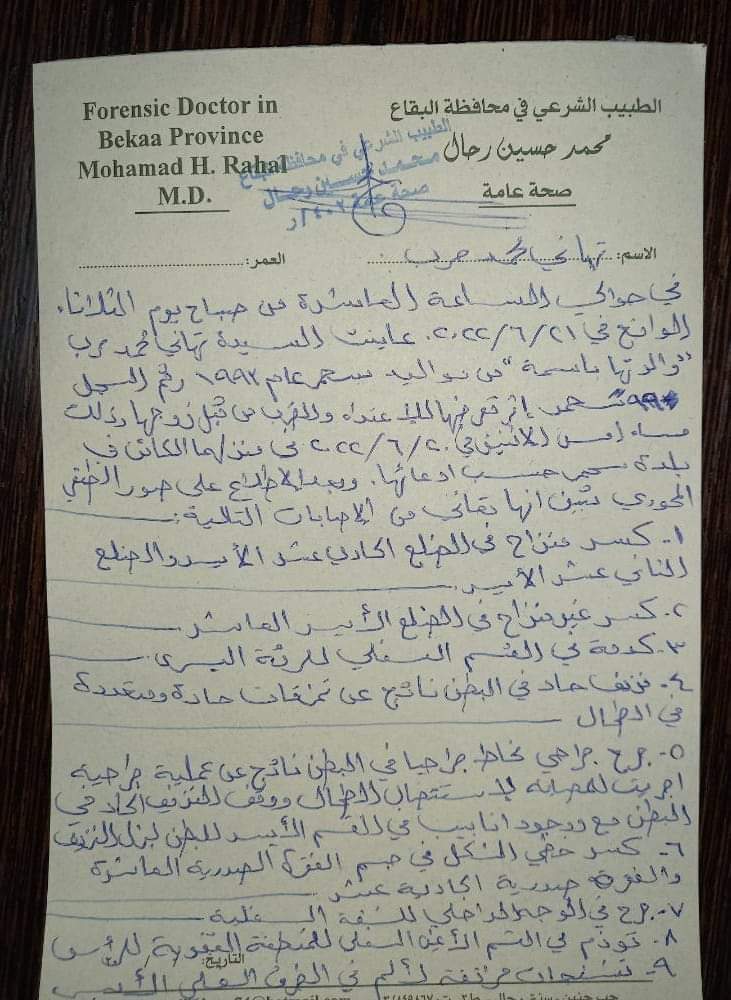 Forensic Doctor in
Bekaa Province
Mohamad H. Rahal
M.D.
الطبيب الشرعي في محافظة البقاع
محمد حسين رحال
صحة عامة
الطبيب الشرعي في محافظة البقاع
محمد حسين رحال
صحة عامة
الاسم: تهاني محمد حرب
العمر:
في حوالي الساعة العاشرة من صباح يوم الثلاثاء
الواقع في ٢٠٢٢/٦/٢١. عاينت السيدة تهاني محمد حرب
"والدتها باسمة" من مواليد سحمر عام ١٩٩٢ رقم السجل
سحمر إثر تعرضها للاعتداء والضرب من قبل زوجها وذلك
مساء امس الاثنين في ٢٠٢٢/٦/٢٠ في منزلهما الكائن في
بلدة سحمر حسب ادعائها. وبعد الاطلاع على صور الطبقي
المحوري تبين انها تعاني من الإصابات التالية:
١- كسر منزاح في الضلع الحادي عشر الأيسر والضلع
الثاني عشر الأيسر
٢- كسر غير منزاح في الضلع الأيسر العاشر
٣- كدمة في القسم السفلي للرئة اليسرى
٤- نزيف حاد في البطن ناتج عن تمزقات حادة ومتعددة
في الطحال
٥- جرح جراحي مخاط جراحيا في البطن ناتج عن عملية جراحية
اجريت للمصابة لاستئصال الطحال ووقف النزيف الحاد في
البطن مع وجود انابيب في القسم الأيسر للبطن لبزل النزيف
٦- كسر خطي الشكل في جسم الفقرة الصدرية العاشرة
والفقرة صدرية الحادية عشر
٧- جرح في الوجه الداخلي للشفة السفلية
٨- تورم في القسم الأيمن السفلي للمنطقة القفوية للرأس
التاريخ:
٩- تسحجات مترافقة لألم في الطرف العلوي الأيسر